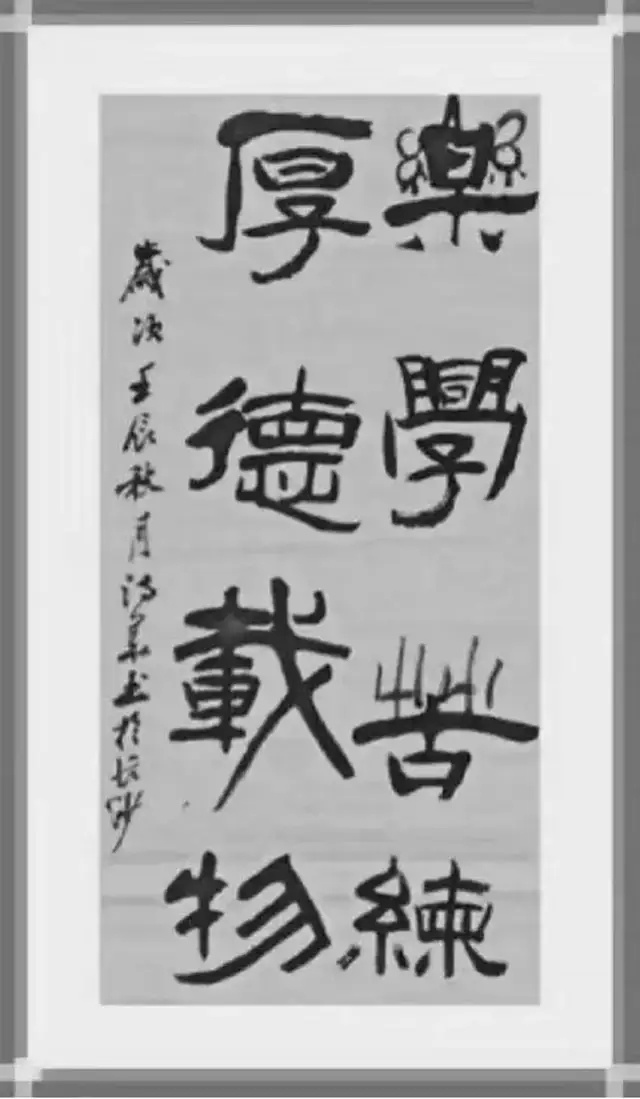 樂學苦練
厚德載物
歲次壬辰秋月鴻篆書於長沙